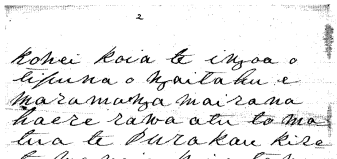 2
kohei koia te ingoa o
tipuna o ngaitahu e
maramanga mairana
haere rawa atu to ma
tua te Purakau kire